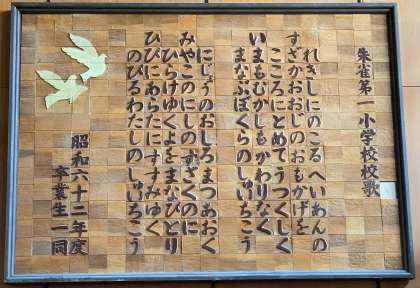 朱雀第一小学校校歌
れきしにのこる へいあんの
すざかおおじの おもかげを
こころにとめて うつくしく
いまもむかしも かわりなく
まなぶぼくらの しゅいちこう
にじょうのおしろ まつあおく
みやこのにしの すざくのに
ひらけゆくよを まなびとり
ひびにあらたに すすみゆく
のびるわたしの しゅいちこう
昭和六十二年度
卒業生一同